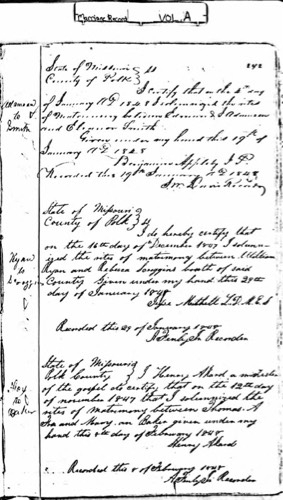 Marriage Record VOL. A
242
State of Missouri
County of Polk } ss
I certify that on the 2nd day
of January AD 1848 I solemnized the rites
of Matrimony between Edmund J Adamson
and Elenor Smith
Adamson
to
Smith
Given under my hand this 19th of
January AD 1848
Benjamin Appleby J P
Recorded this 19th January AD 1848
State of Missouri
County of Polk
I do hereby certify that
on the 16th day of December 1847 I solemn
ized the rites of matrimony between William
Ryan and Rebeca Scroggins booth of said
County Given under my hand this 28th
day of January 1848
Ryan
to
Scroggins
Recorded this 29 of January 1848
Recorder
State of Missouri
Polk County } I Henry Akard a minister
of the gospel do certify that on the 12th day
of november 1847 that I solemnized the
rites of Matrimony between Thomas A
and Mary an Baker given under my
hand this 8th day of February 1848
Henry Akard
to
Baker
Recorded this 8 of February 1848
Recorder